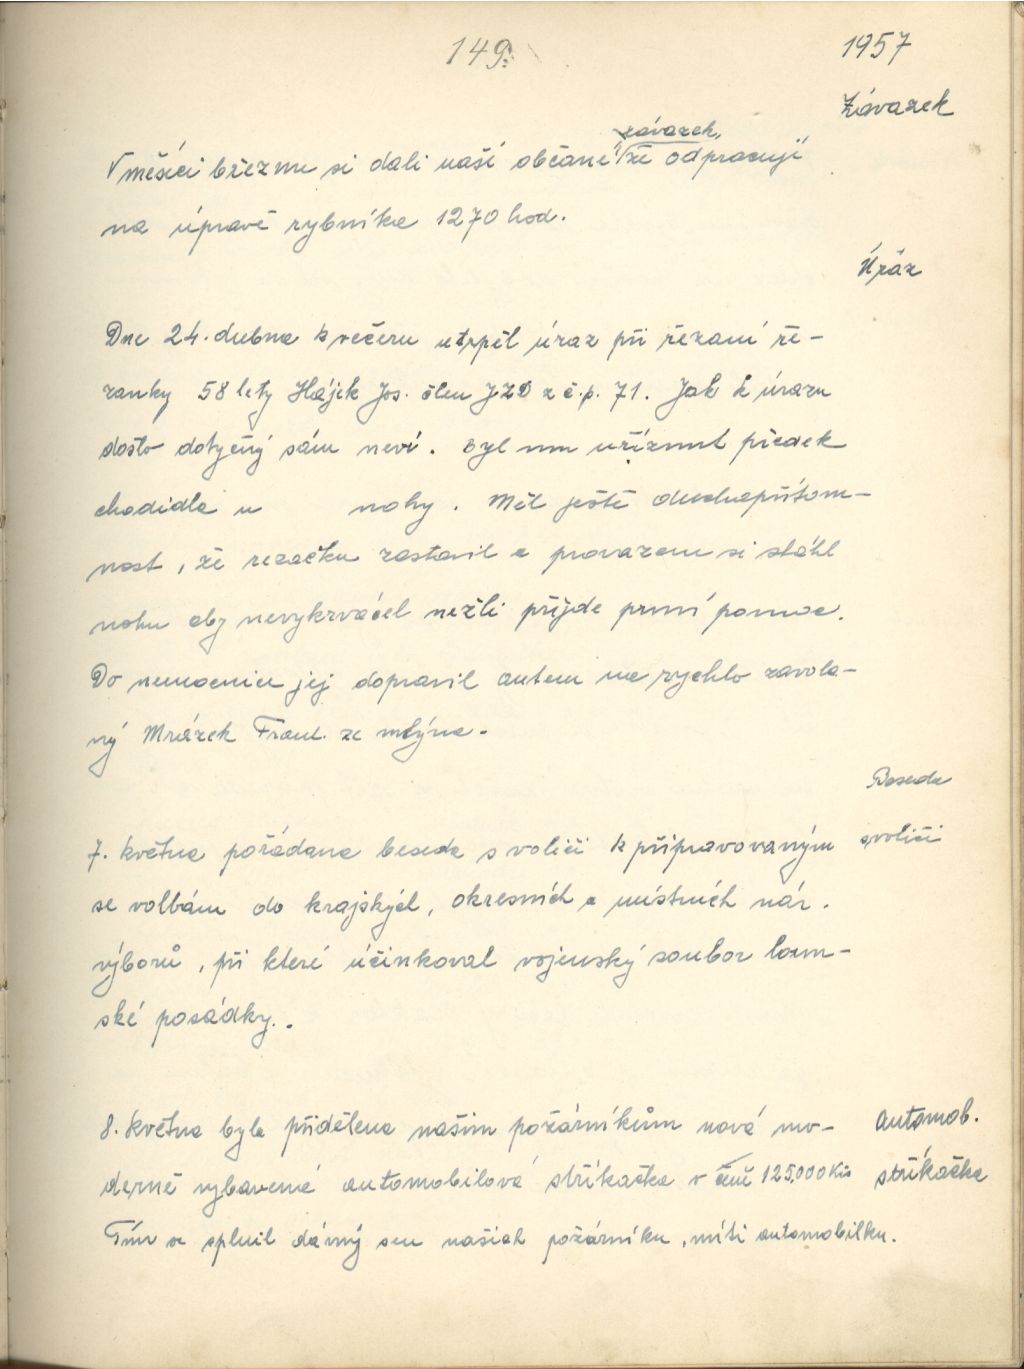 149.
1957
Závazek
závazek,
V měsíci březnu si dali naší občané že odpracují
na úpravě rybníka 1270 hod.
Úráz
Dne 24. dubna k večeru utrpěl úraz při řezaní ře-
zanky 58 letý Hájek Jos. člen JZD z č.p. 71. Jak k úrazu
došlo dotyčný sám neví. Byl mu uříznut předek
chodidla u nohy. Měl ještě duchapřítom-
nost, že rezačku zastavil a provazem si stáhl
nohu aby nevykrvácel nežli přijde první pomoc.
Do nemocnice jej dopravil autem na rychlo zavola-
ný Mrázek Frant. ze mlýna.
Beseda
7. května pořádana beseda s voliči k připravovaným s voliči
se volbám do krajských, okresních a místních nár.
výborů, při které účinkoval vojenský soubor loun-
ské posádky.
8. května byla přidělena našim požárníkům nová mo- Automob.
derně vybavená automobilová stříkačka v ceně 125.000 Kčs stříkačka
Tím se splnil dávný sen našich požárníku, míti automobilku.